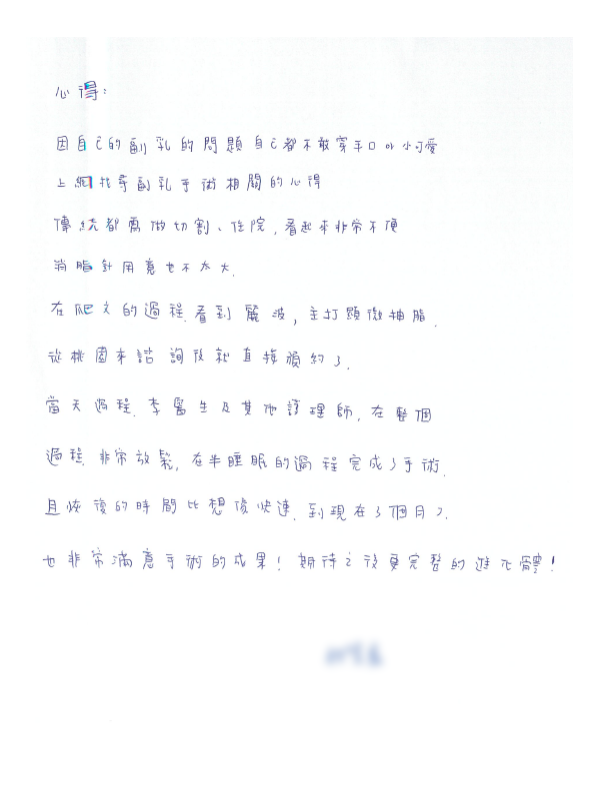 心得:
因自己的副乳的問題自己都不敢穿平口or小可愛
上網找尋副乳手術相關的心得
傳統都需做切割、住院,看起來非常不便
消脂針用意也不太大.
在爬文的過程.看到麗波,主打顯微抽脂.
從桃園來諮詢後就直接預約了.
當天過程.李醫生及其他護理師,在整個
過程.非常放鬆,在半睡眠的過程完成了手術.
且恢復的時間比想像快速.到現在3個月了.
也非常滿意手術的成果!期待之後更完整的進化體!